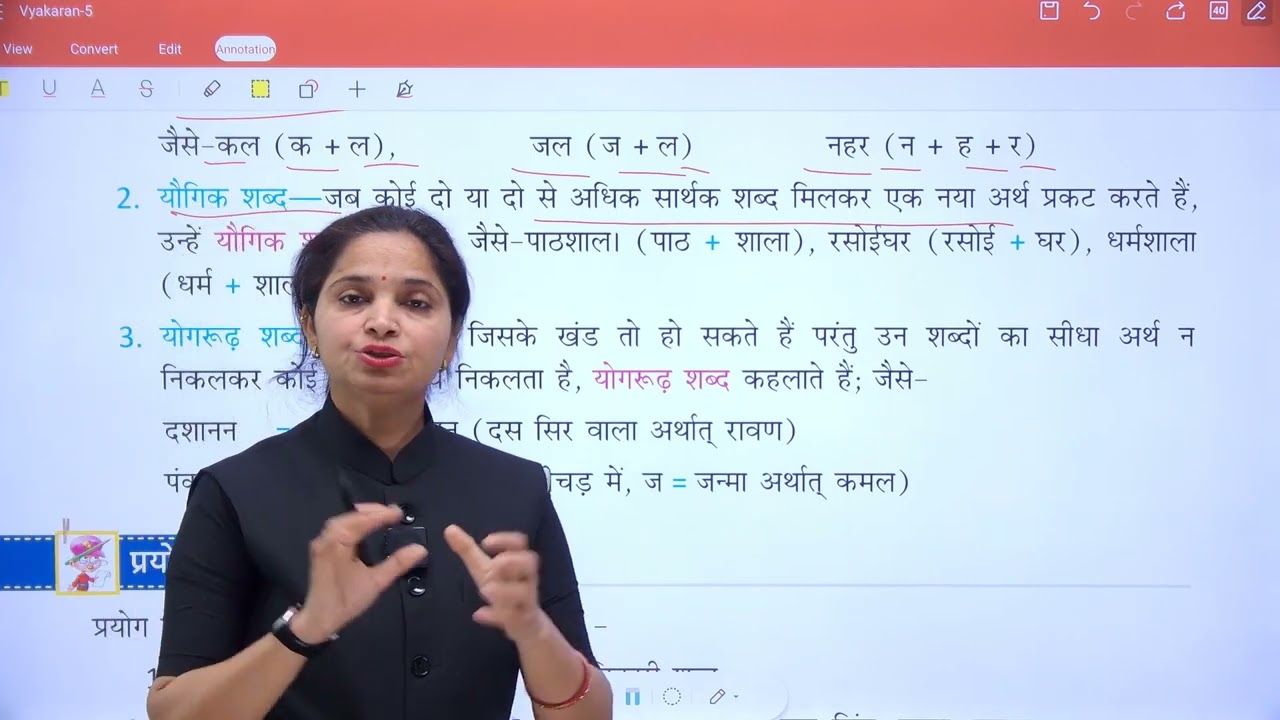 Vyakaran-5
View Convert Edit Annotation
40
U A S
जैसे-कल (क + ल), जल (ज + ल) नहर (न + ह + र)
2. यौगिक शब्द—जब कोई दो या दो से अधिक सार्थक शब्द मिलकर एक नया अर्थ प्रकट करते हैं,
उन्हें यौगिक जैसे-पाठशाला (पाठ + शाला), रसोईघर (रसोई + घर), धर्मशाला
(धर्म +
3. योगरूढ़ जिसके खंड तो हो सकते हैं परंतु उन शब्दों का सीधा अर्थ न
निकलकर कोई निकलता है, योगरूढ़ शब्द कहलाते हैं; जैसे-
दशानन = (दस सिर वाला अर्थात् रावण)
में, ज = जन्मा अर्थात् कमल)
प्रयोग